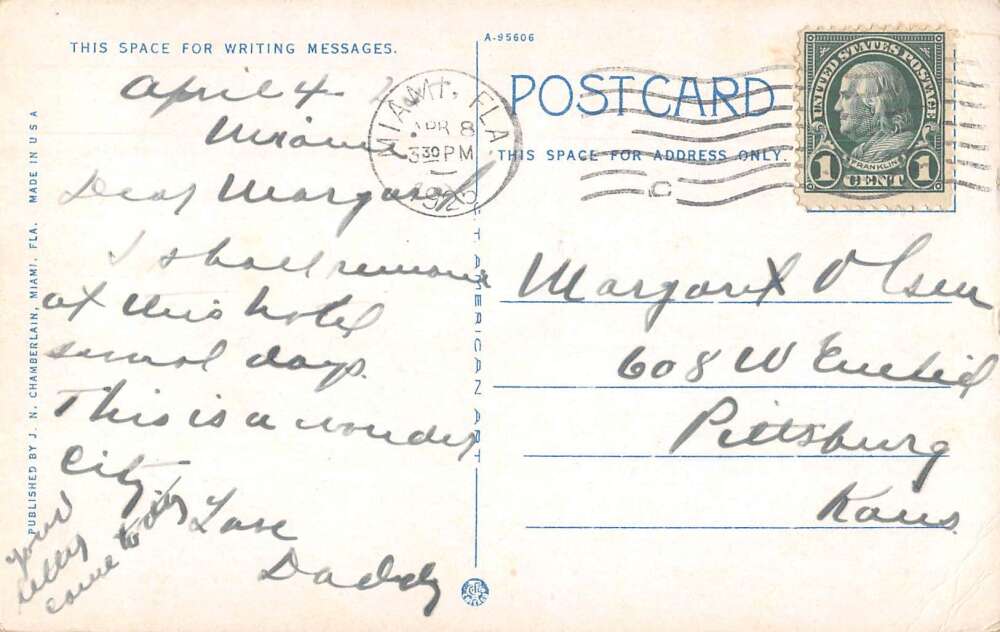 THIS SPACE FOR WRITING MESSAGES.
April 4
Miami
Dear Margaret
I shall remain
at this hotel
several days.
This is a wonder
City.
Love
Daddy
your
letter
came today
PUBLISHED BY J. N. CHAMBERLAIN, MIAMI, FLA. MADE IN U S A
A-95606
MIAMI, FLA.
APR 8
3 30 PM
192
POST CARD
THIS SPACE FOR ADDRESS ONLY.
UNITED STATES POSTAGE
FRANKLIN
1 CENT 1
Margaret Olsen
608 W Euclid
Pittsburg
Kans.